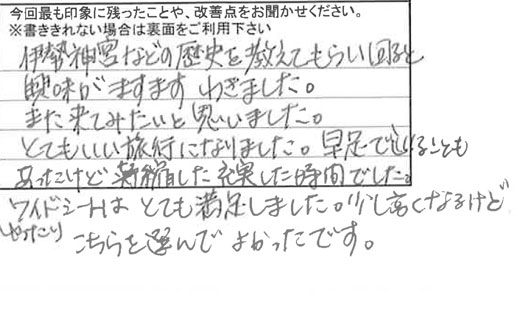 今回最も印象に残ったことや、改善点をお聞かせください。
※書ききれない場合は裏面をご利用下さい
伊勢神宮などの歴史を教えてもらい回ると
興味がますます わきました。
また来てみたいと思いました。
とてもいい旅行になりました。早足で
あったけど した充実した時間でした。
ワイドシートは とても満足しました。少し高くなるけど
やったり こちらを選んで よかったです。